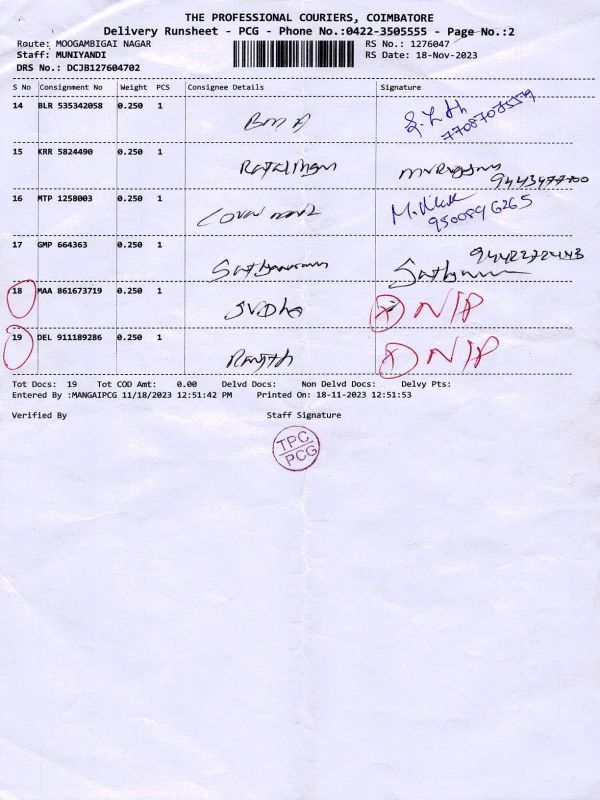 THE PROFESSIONAL COURIERS, COIMBATORE
Delivery Runsheet - PCG - Phone No.:0422-3505555 - Page No.:2
Route: MOOGAMBIGAI NAGAR RS No.: 1276047
Staff: MUNIYANDI RS Date: 18-Nov-2023
DRS No.: DCJB127604702
S No Consignment No Weight PCS Consignee Details Signature
14 BLR 535342058 0.250 1 BMA
77087075579
15 KRR 5824490 0.250 1
9443477700
16 MTP 1258003 0.250 1
9500896265
17 GMP 664363 0.250 1
18 MAA 861673719 0.250 1 SVDha N/P
19 DEL 911189286 0.250 1 Ranjth N/P
Tot Docs: 19 Tot COD Amt: 0.00 Delvd Docs: Non Delvd Docs: Delvy Pts:
Entered By :MANGAIPCG 11/18/2023 12:51:42 PM Printed On: 18-11-2023 12:51:53
Verified By Staff Signature
TPC
PCG